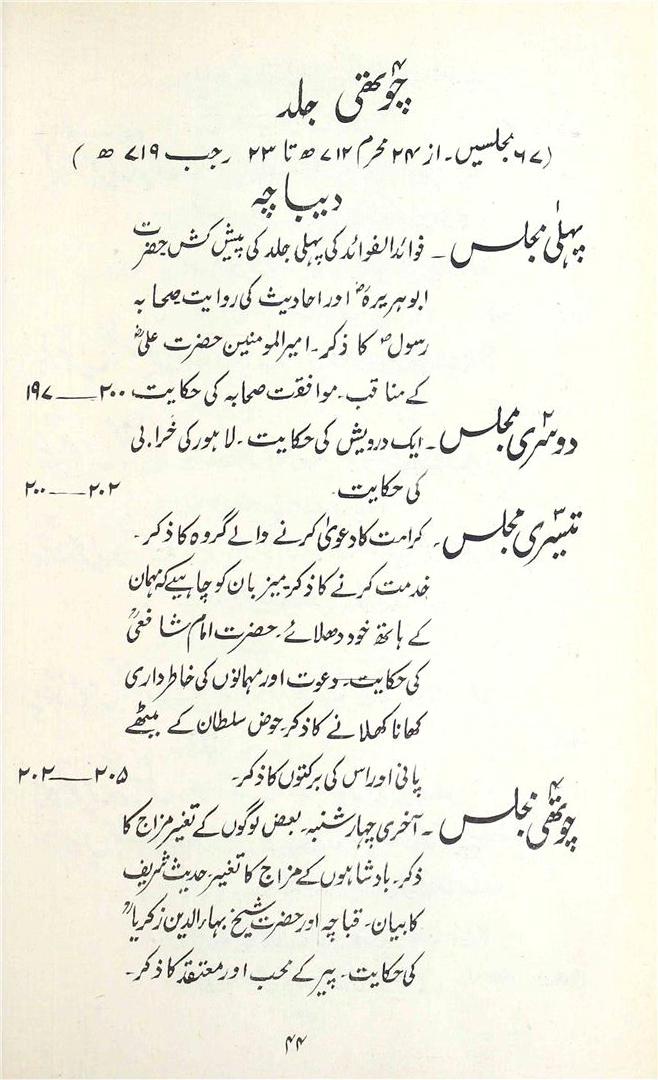 چوتھی جلد
(۶۷ مجلسیں۔ از ۲۴ محرم ۷۱۲ھ تا ۲۳ رجب ۷۱۹ھ)
دیباچہ
پہلی مجلس ۔ فوائد الفوائد کی پہلی جلد کی پیش کش حضرت
ابوہریرہؓ اور احادیث کی روایت صحابہ
رسولؐ کا ذکر۔ امیرالمومنین حضرت علیؓ
کے مناقب۔ موافقت صحابہ کی حکایت ۲۰۰ــــ۱۹۷
دوسری مجلس۔ ایک درویش کی حکایت۔ لاہور کی خرابی
کی حکایت۔ ۲۰۲ــــ۲۰۰
تیسری مجلس ۔ کرامت کا دعویٰ کرنے والے گروہ کا ذکر۔
خدمت کرنے کا ذکر۔ میزبان کو چاہیے کہ مہمان
کے ہاتھ خود دھلائے۔ حضرت امام شافعیؒ
کی حکایت۔ دعوت اور مہمانوں کی خاطر داری
کھانا کھلانے کا ذکر۔ حوض سلطان کے میٹھے
پانی اور اس کی برکتوں کا ذکر۔ ۲۰۵ــــ۲۰۲
چوتھی مجلس ۔ آخری چہارشنبہ۔ بعض لوگوں کے تغیر مزاج کا
ذکر۔ بادشاہوں کے مزاج کا تغیر۔ حدیث شریف
کا بیان۔ قباچہ اور حضرت شیخ بہارالدین زکریاؒ
کی حکایت۔ پیر کے محب اور معتقد کا ذکر۔
۴۴